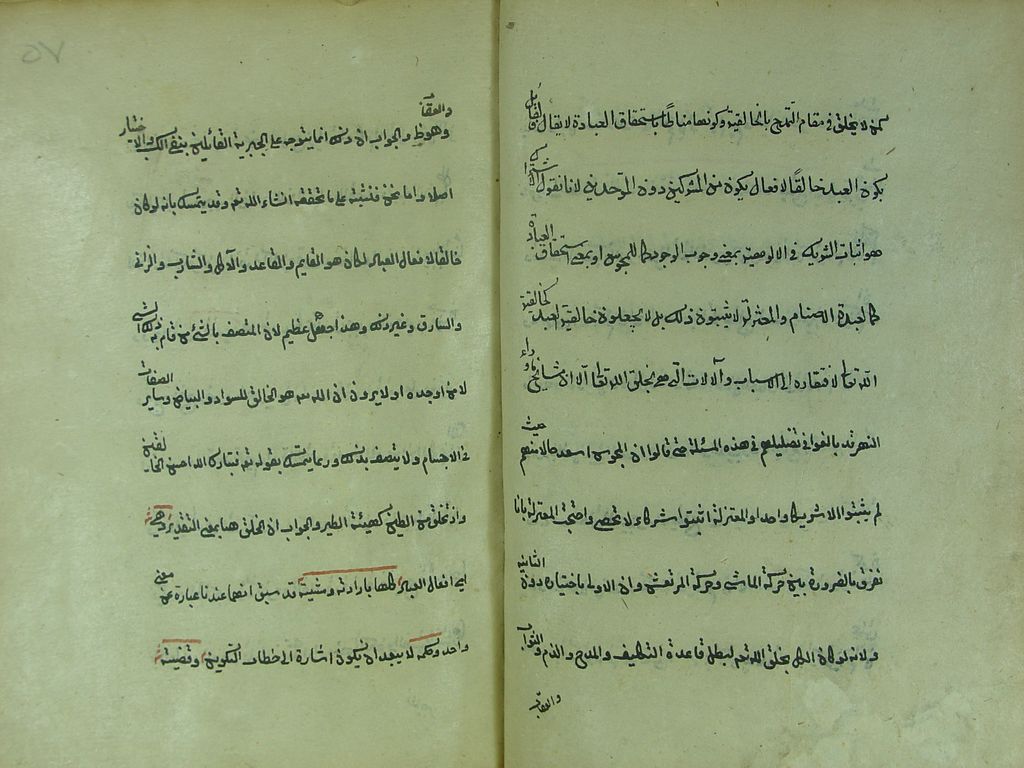 كمن لا يخلق في مقام التمدح بالخالقية وكونها مناطا لاستحقاق العبادة لا يقال فالقائل
بكون العبد خالقا لافعاله يكون من المشركين دون الموحدين لانا نقول الاشتراك
هو اثبات الشريك في الالوهية بمعنى وجوب الوجود كما للمجوس او بمعنى استحقاق العبادة
كما لعبدة الاصنام والمعتزلة لا يثبتون ذلك بل لا يجعلون خالقية العبد كخالقية
الله تعالى لافتقاره الى الاسباب والآلات التي هي بخلق الله تعالى الا ان مشايخ ما وراء
النهر قد بالغوا في تضليلهم في هذه المسئلة حتى قالوا ان المجوس اسعد حالا منهم حيث
لم يثبتوا الا شريكا واحدا والمعتزلة اثبتوا شركاء لا تحصى واحتجت المعتزلة بانا
نفرق بالضرورة بين حركة الماشي وحركة المرتعش وان الاولى باختياره دون الثانية
ولانه لو كان الكل بخلق الله تعم لبطل قاعدة التكليف والمدح والذم والثواب
والعقاب
والعقاب
وهو ظ والجواب ان ذلك انما يتوجه على الجبرية القائلين بنفي الكسب والاختيار
اصلا واما نحن فنثبته على ما نحققه انشاء الله تعم وقد يتمسك بانه لو كان
خالقا لافعال العباد لكان هو القايم والقاعد والآكل والشارب والزاني
والسارق وغير ذلك وهذا جهل عظيم لان المتصف بالشئ من قام به ذلك الشئ
لا من اوجده او لا يرون ان الله تعم هو الخالق للسواد والبياض وساير الصفات
في الاجسام ولا يتصف بذلك وربما يتمسك بقوله تعم فتبارك الله احسن الخالقين
واذ تخلق من الطين كهيئة الطير والجواب ان الخلق ههنا بمعنى التقدير وهي
اي افعال العباد كلها بارادته ومشيته قد سبق انهما عندنا عبارة عن معنى
واحد وحكمه لا يبعد ان يكون اشارة الى خطاب التكوين وقضيته